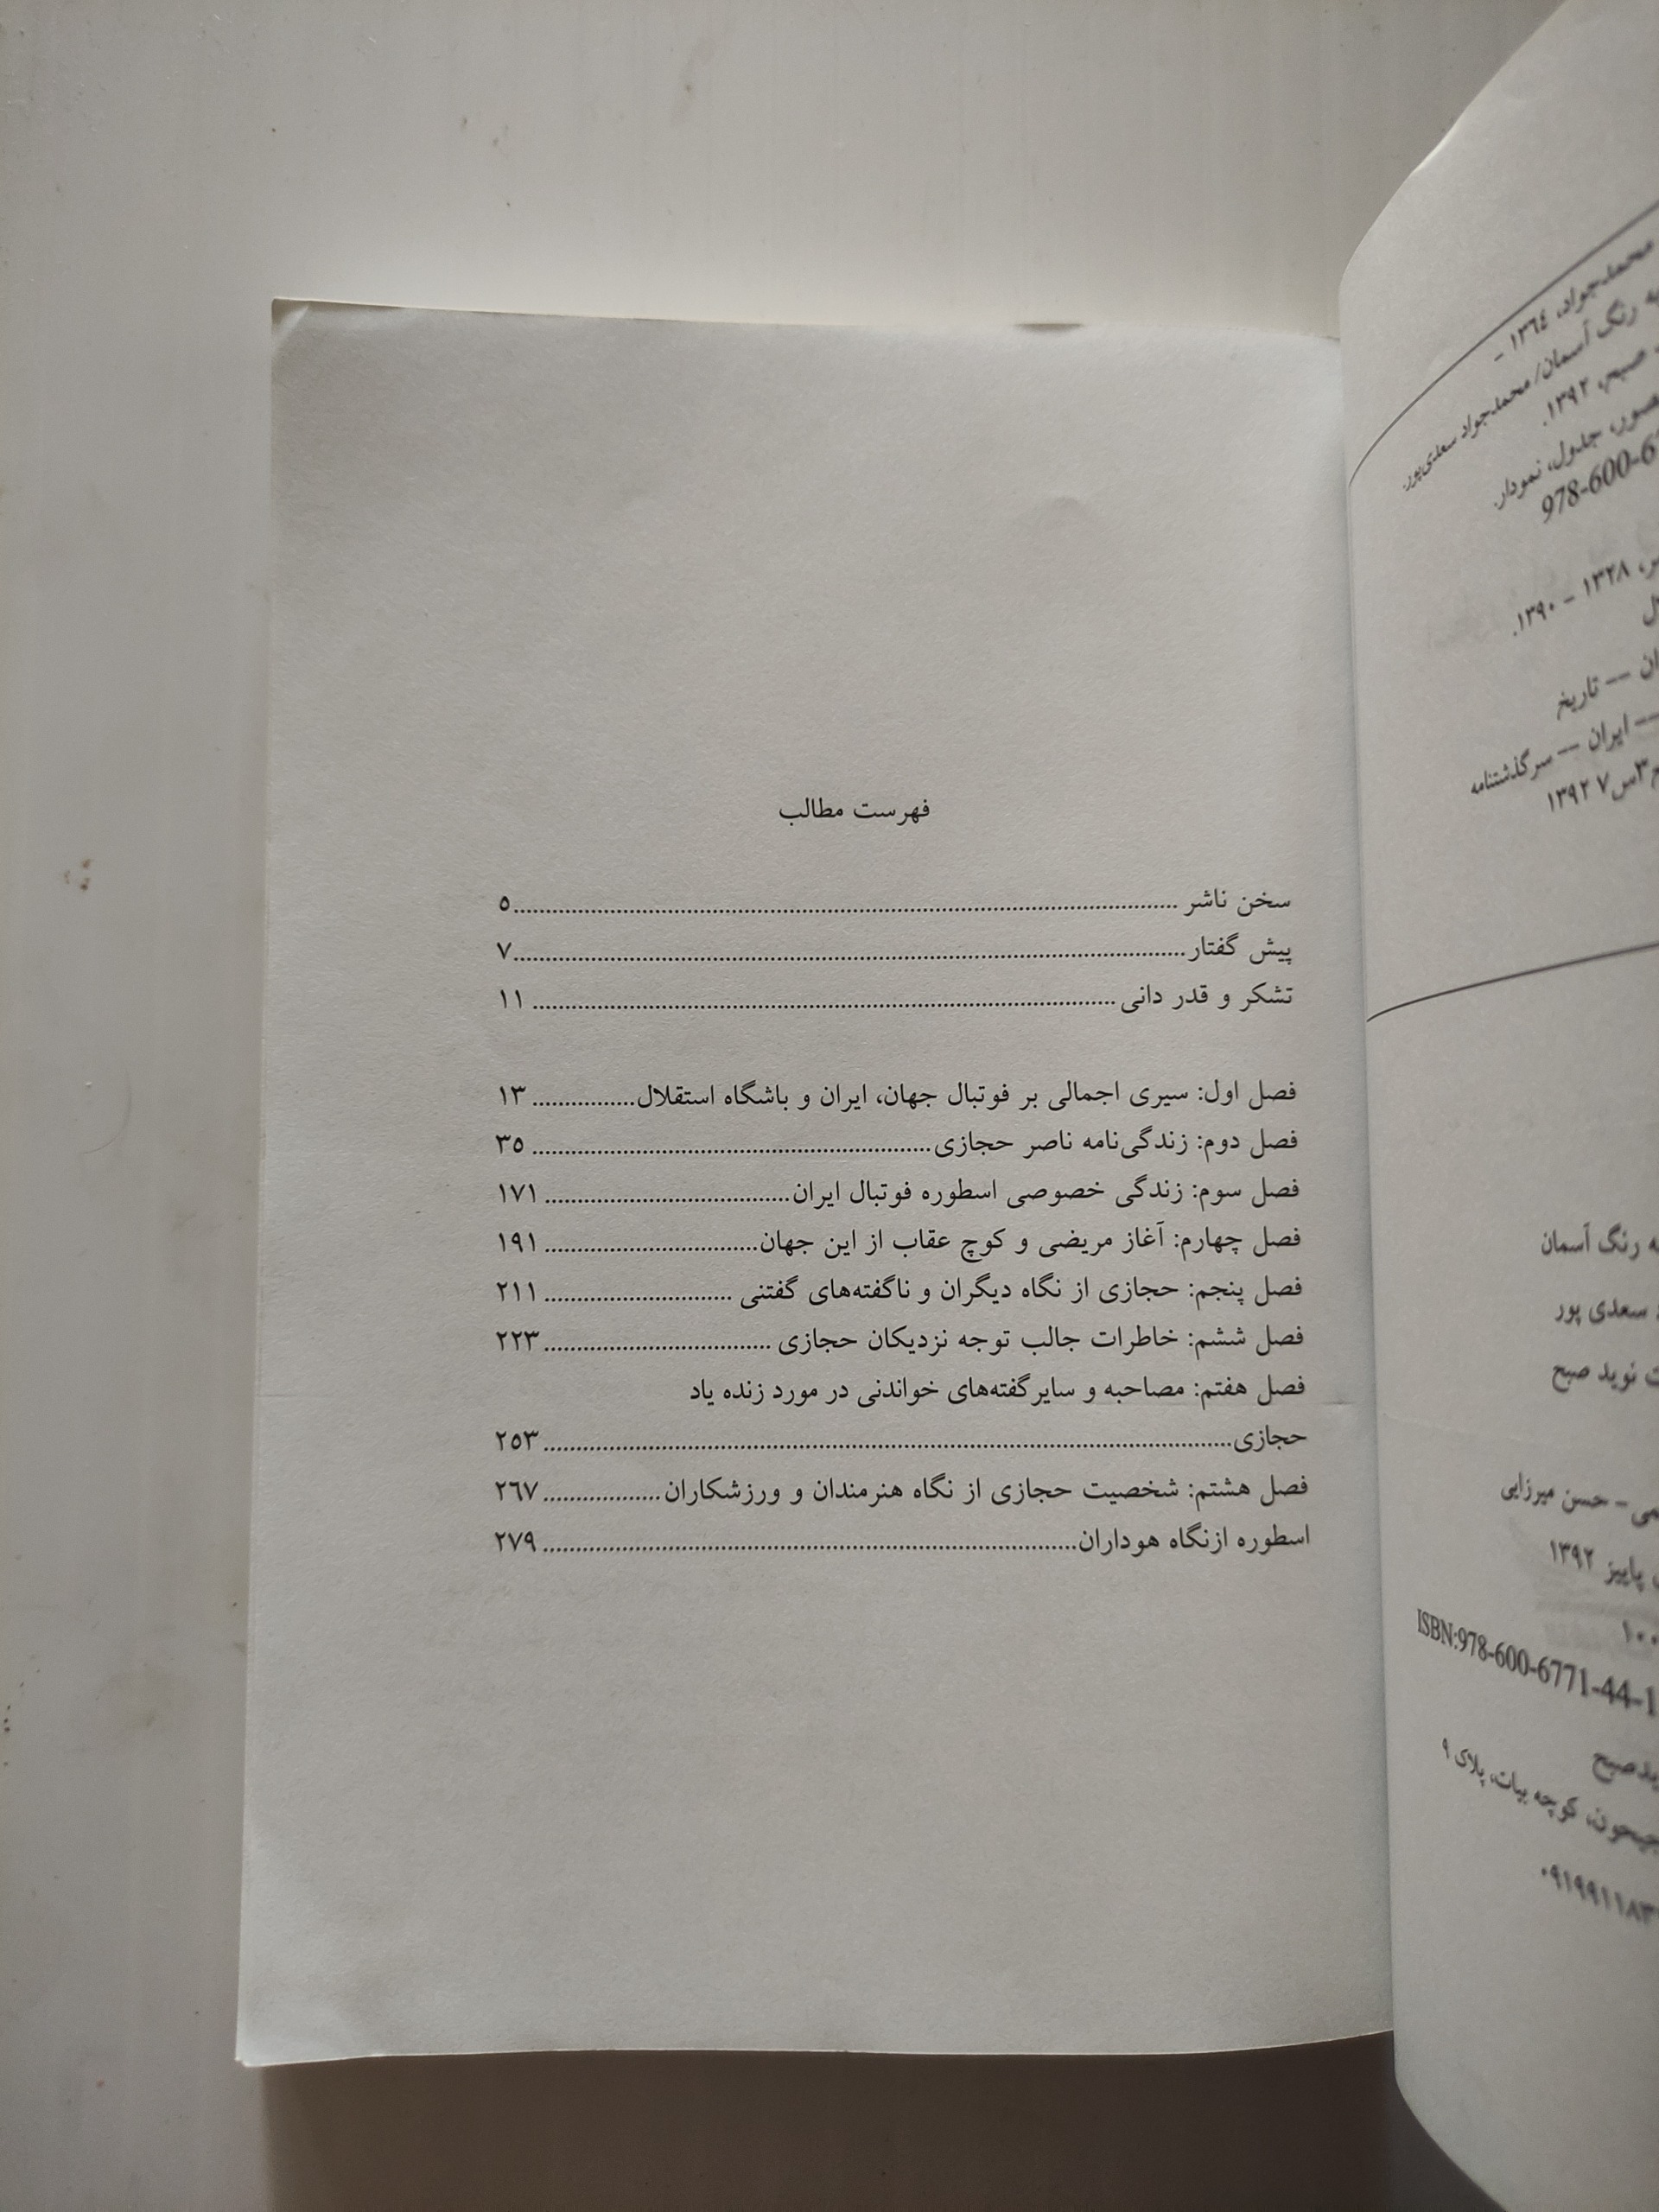 فهرست مطالب
سخن ناشر ........ ٥
پیش گفتار ........ ٧
تشکر و قدر دانی ........ ١١
فصل اول: سیری اجمالی بر فوتبال جهان، ایران و باشگاه استقلال ........ ١٣
فصل دوم: زندگی‌نامه ناصر حجازی ........ ٣٥
فصل سوم: زندگی خصوصی اسطوره فوتبال ایران ........ ١٧١
فصل چهارم: آغاز مریضی و کوچ عقاب از این جهان ........ ١٩١
فصل پنجم: حجازی از نگاه دیگران و ناگفته‌های گفتنی ........ ٢١١
فصل ششم: خاطرات جالب توجه نزدیکان حجازی ........ ٢٢٣
فصل هفتم: مصاحبه و سایرگفته‌های خواندنی در مورد زنده یاد
حجازی ........ ٢٥٣
فصل هشتم: شخصیت حجازی از نگاه هنرمندان و ورزشکاران ........ ٢٦٧
اسطوره ازنگاه هوداران ........ ٢٧٩
محمدجواد، ١٣٦٤ -
رنگ آسمان/ محمدجواد سعدی‌پور.
صبح، ١٣٩٢.
جدول، نمودار.
978-600-6
١٣٢٨ - ١٣٩٠.
-- تاریخ
-- ایران -- سرگذشتنامه
١٣٩٢ ٧س٣
رنگ آسمان
سعدی پور
نوید صبح
- حسن میرزایی
پاییز ١٣٩٢
١٠٠
ISBN:978-600-6771-44-1
کوچه بیات، پلاک ٩
٠٩١٩٩١١٨٣